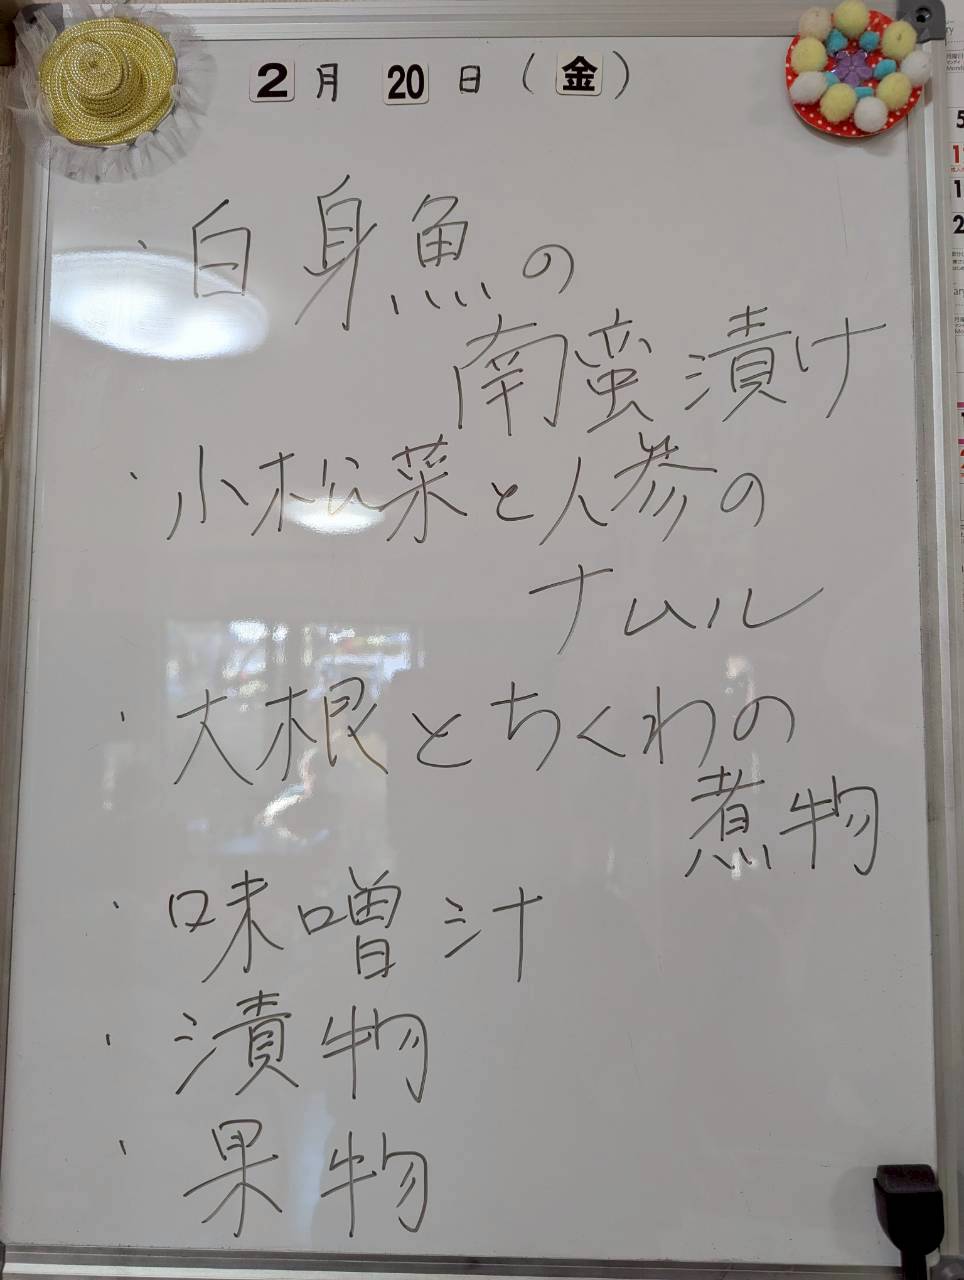 2月20日(金)
・白身魚の
南蛮漬け
・小松菜と人参の
ナムル
・大根とちくわの
煮物
・味噌汁
・漬物
・果物